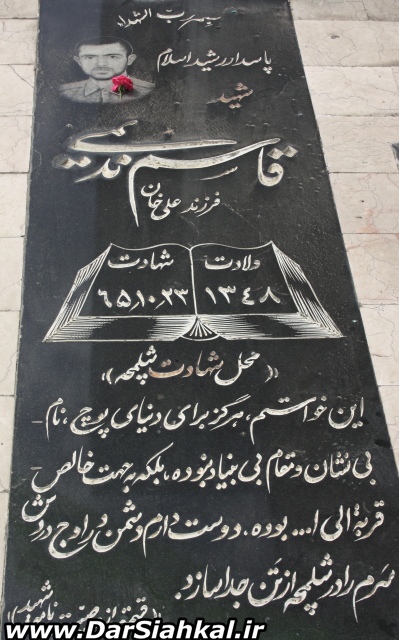 بسم رب الشهداء
پاسدار رشید اسلام
شهید
قاسم ندیمی
فرزند علی خان
ولادت
۱۳۴۸
شهادت
۶۵٫۱۰٫۲۳
(( محل شهادت شلمچه ))
این خواستم، هرگز برای دنیای پوچی، نام -
بی نشان و مقام بی بنیاد نبوده، بلکه به جهت خالص -
قربة الی ا... بوده. دوست دارم دشمن در اوج درّش
سرم را در شلمچه از تن جدا سازد.
شهید
www.DarSiahkal.ir